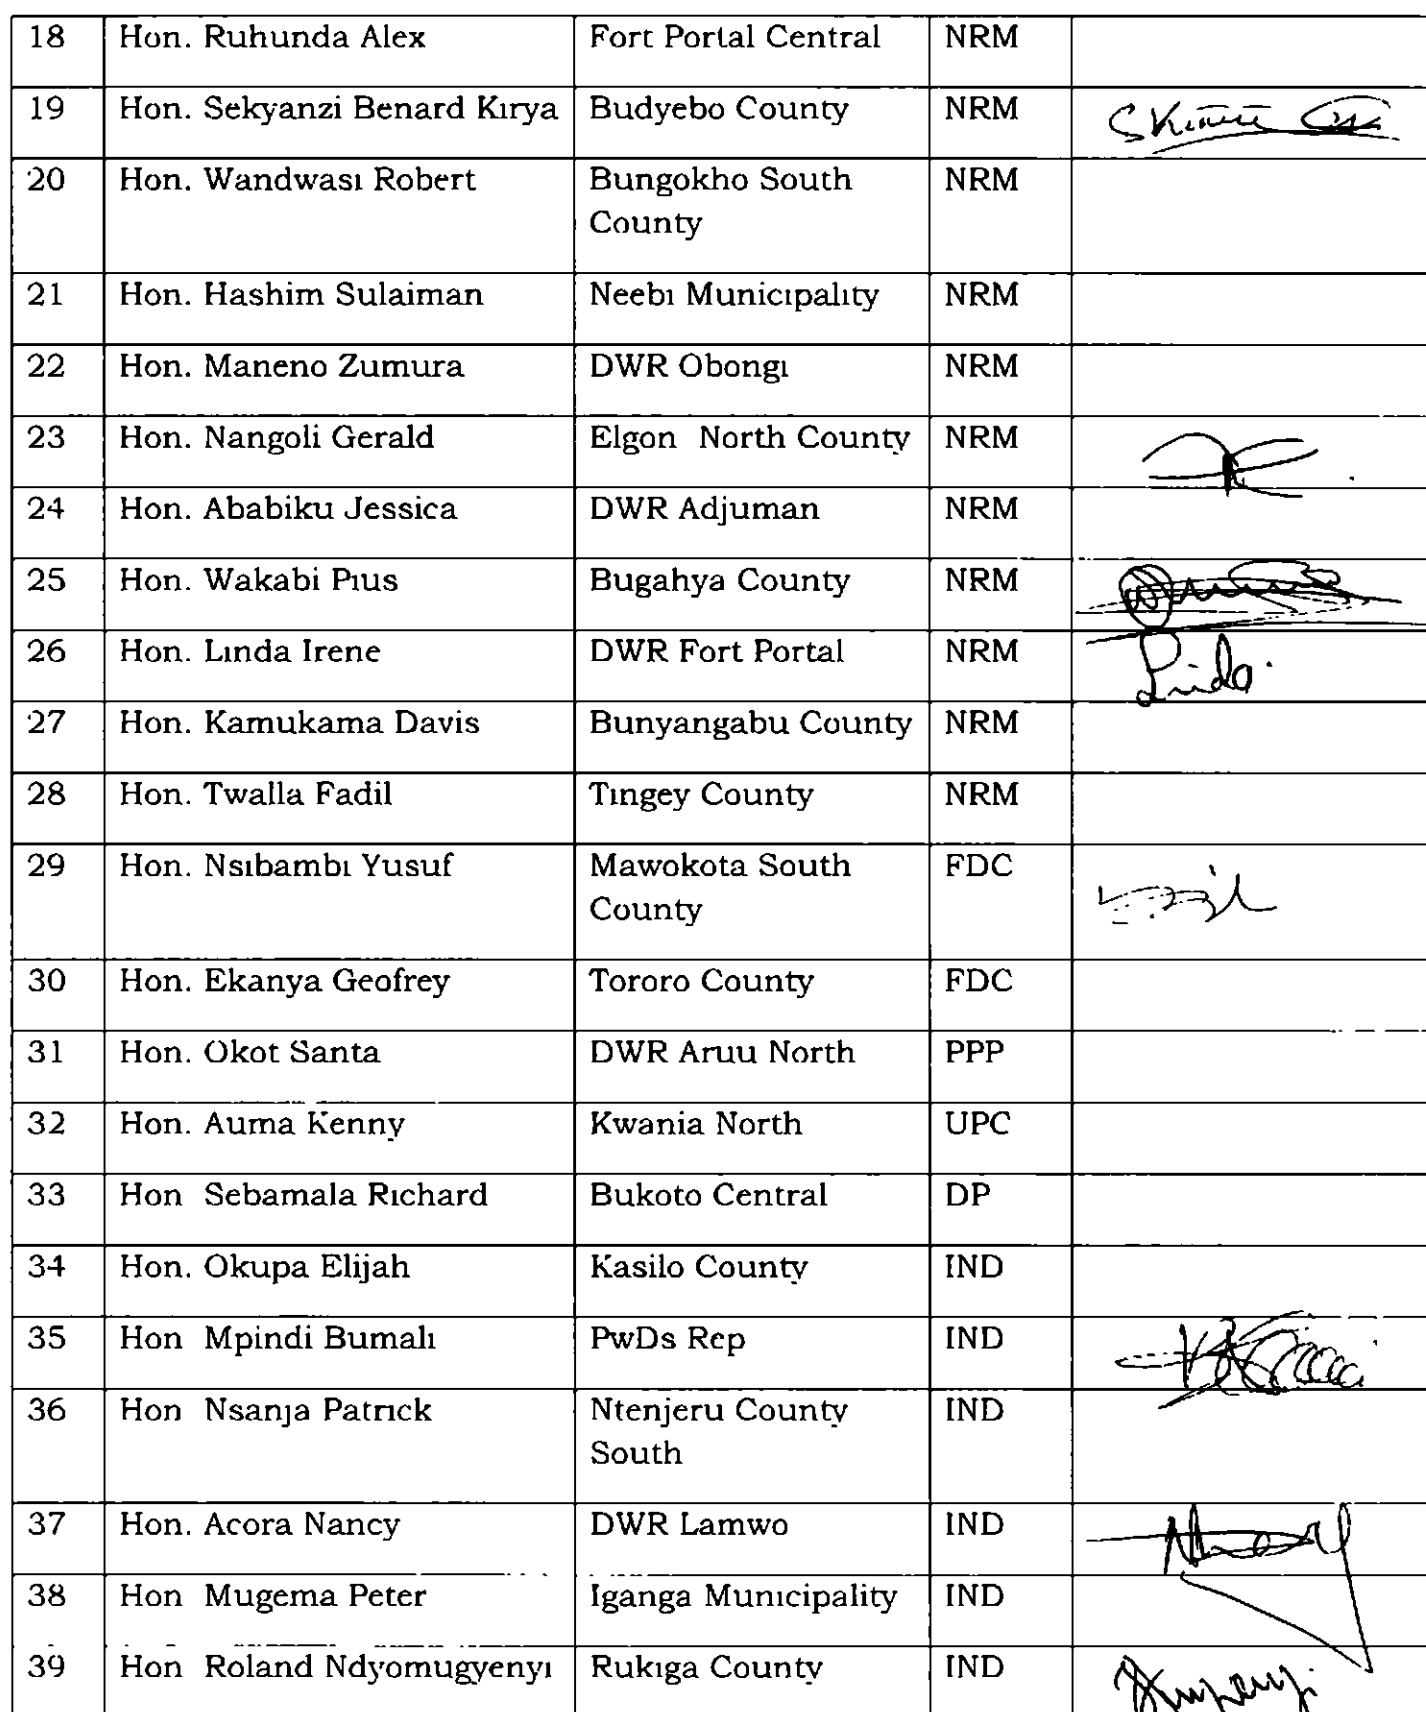 18 Hon. Ruhunda Alex Fort Portal Central NRM
19 Hon. Sekyanzi Benard Kırya Budyebo County NRM
20 Hon. Wandwası Robert Bungokho South NRM
County
21 Hon. Hashim Sulaiman Neebı Munıcıpalıty NRM
22 Hon. Maneno Zumura DWR Obongı NRM
23 Hon. Nangoli Gerald Elgon North County NRM
24 Hon. Ababiku Jessica DWR Adjuman NRM
25 Hon. Wakabi Pıus Bugahya County NRM
26 Hon. Lında Irene DWR Fort Portal NRM
Linda.
27 Hon. Kamukama Davis Bunyangabu County NRM
28 Hon. Twalla Fadil Tıngey County NRM
29 Hon. Nsıbambı Yusuf Mawokota South FDC
County
30 Hon. Ekanya Geofrey Tororo County FDC
31 Hon. Okot Santa DWR Aruu North PPP
32 Hon. Auma Kenny Kwania North UPC
33 Hon Sebamala Rıchard Bukoto Central DP
34 Hon. Okupa Elijah Kasilo County IND
35 Hon Mpindi Bumalı PwDs Rep IND
36 Hon Nsanja Patrıck Ntenjeru County IND
South
37 Hon. Acora Nancy DWR Lamwo IND
38 Hon Mugema Peter Iganga Munıcipality IND
39 Hon Roland Ndyomugyenyı Rukıga County IND